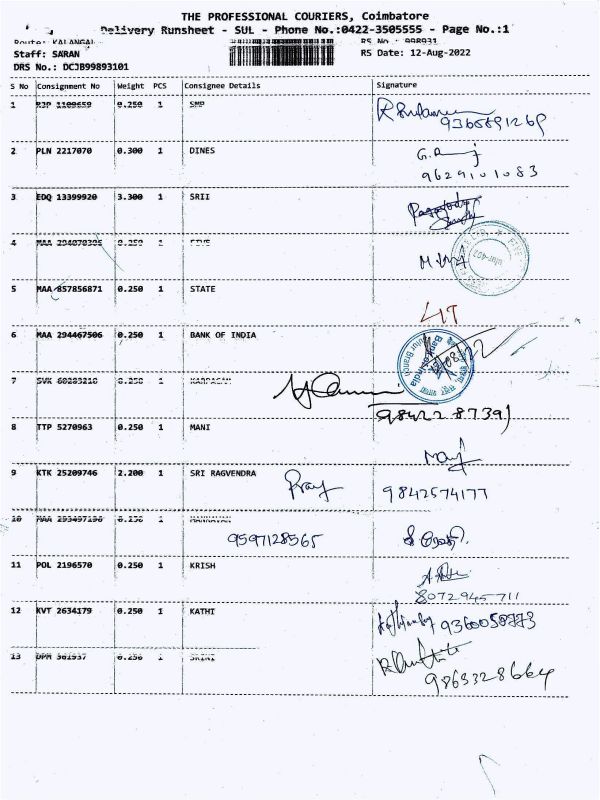 THE PROFESSIONAL COURIERS, Coimbatore
Delivery Runsheet - SUL - Phone No.:0422-3505555 - Page No.:1
Route: KALANGAL RS No : 998931
Staff: SARAN RS Date: 12-Aug-2022
DRS No.: DCJB99893101
S No Consignment No Weight PCS Consignee Details Signature
1 RJP 1109659 0.250 1 SMP
2 PLN 2217070 0.300 1 DINES
G.Raj
9629101083
3 EDQ 13399920 3.300 1 SRII
4 MAA 0.250 1
5 MAA 857856871 0.250 1 STATE
6 MAA 294467506 0.250 1 BANK OF INDIA
Bank of India
7 SVK 60203210 0.250 1
9842287391
8 TTP 5270963 0.250 1 MANI
Mani
9 KTK 25209746 2.200 1 SRI RAGVENDRA
9842574177
10 MAA 0.250 1
9597128565
11 POL 2196570 0.250 1 KRISH
8072945711
12 KVT 2634179 0.250 1 KATHI
9360058773
13 DPM 361937 0.250 1 SRINI
9863328664